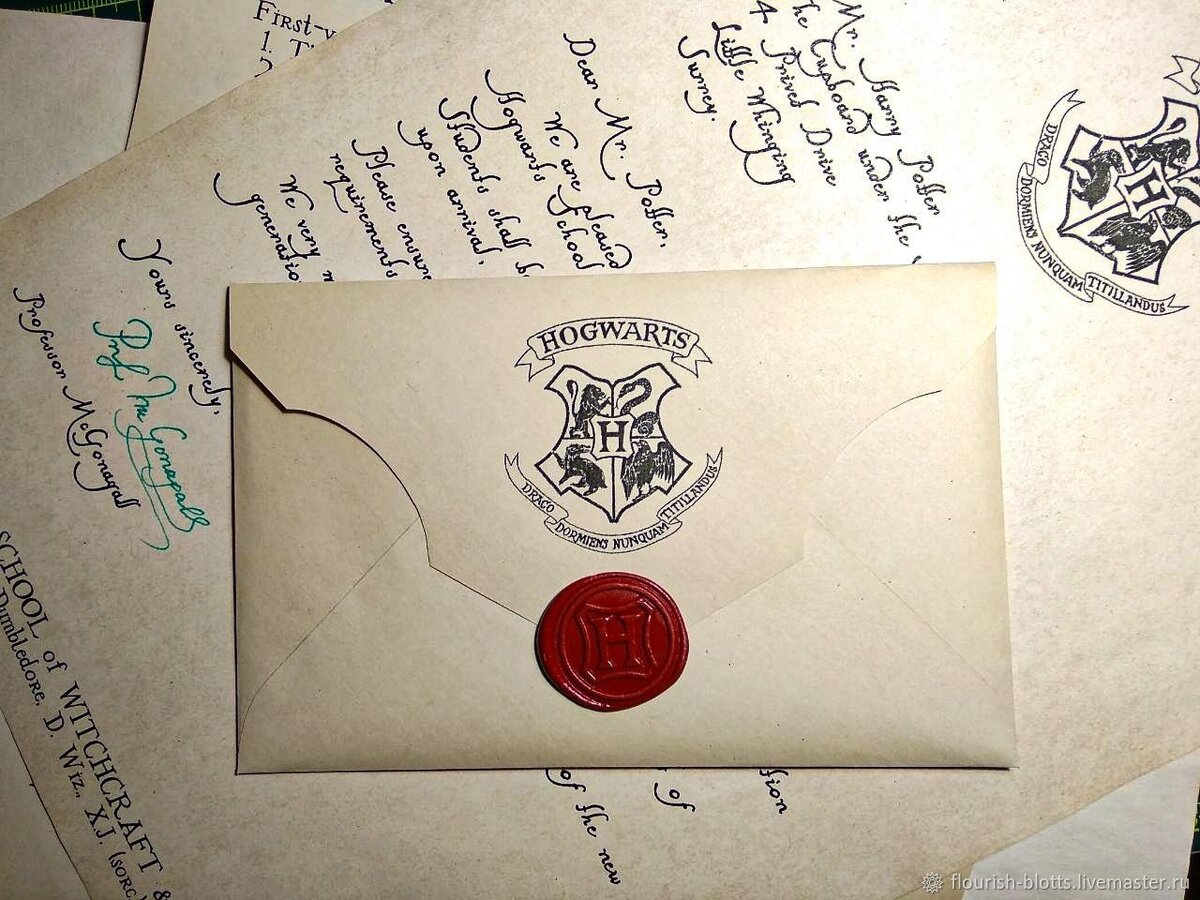 First-y
1. T
Mr. Harry Potter
The Cupboard under the
4 Privet Drive
Little Whinging
Surrey.
Dear Mr. Potter,
We are pleased
Hogwarts School
Students shall b
upon arrival.
Please ensure
requirements
We very m
generatio
Yours sincerely,
Prof McGonagall
Professor McGonagall
DRACO DORMIENS NUNQUAM TITILLANDUS
H
HOGWARTS
H
DRACO DORMIENS NUNQUAM TITILLANDUS
H
SCHOOL of WITCHCRAFT &
Dumbledore, D. Wiz., X.J. (sorc
of the new
of
sion
flourish-blotts.livemaster.ru